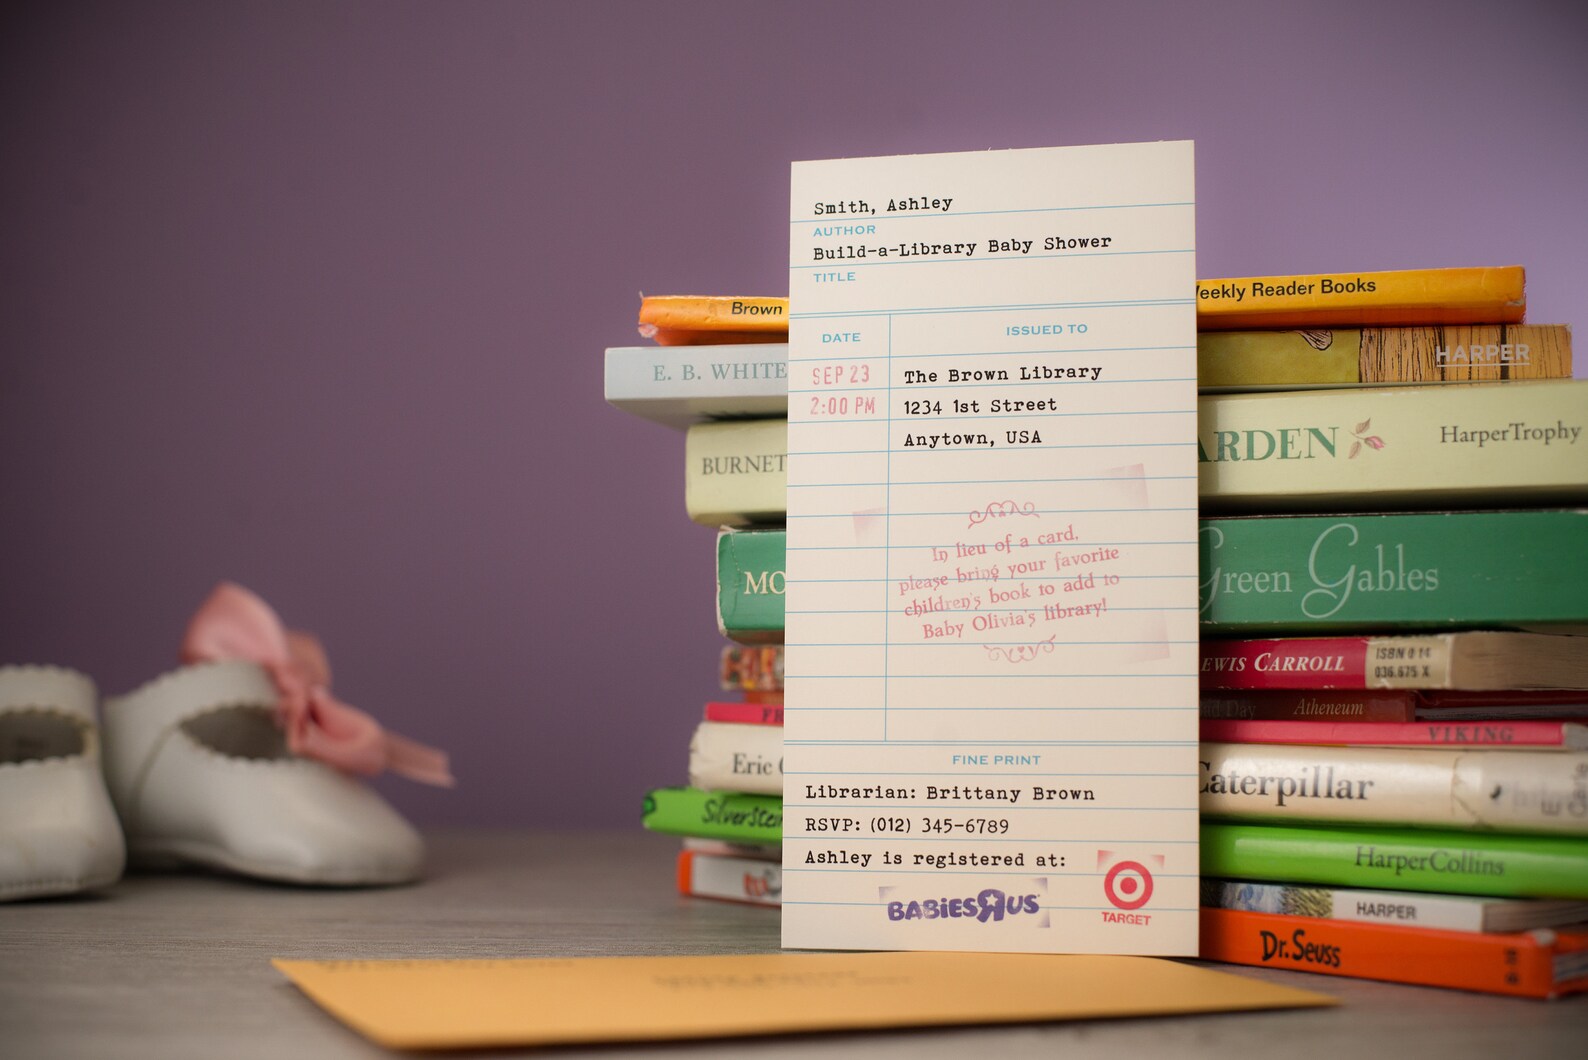 Smith, Ashley
AUTHOR
Build-a-Library Baby Shower
TITLE
DATE
ISSUED TO
SEP 23
2:00 PM
The Brown Library
1234 1st Street
Anytown, USA
In lieu of a card,
please bring your favorite
children's book to add to
Baby Olivia's library!
FINE PRINT
Librarian: Brittany Brown
RSVP: (012) 345-6789
Ashley is registered at:
BABIESRUS
TARGET
Brown
Weekly Reader Books
E. B. WHITE
HARPER
BURNET
ARDEN
HarperTrophy
MO
Green Gables
LEWIS CARROLL
ISBN 0 14
036.675 X
Day
Atheneum
FR
VIKING
Eric
Caterpillar
Silverstei
HarperCollins
HARPER
Dr. Seuss